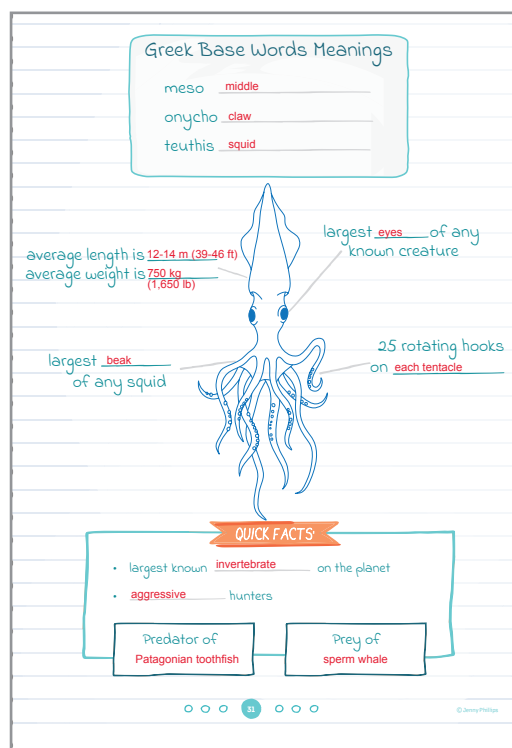 Greek Base Words Meanings
meso middle
onycho claw
teuthis squid
largest eyes of any
known creature
average length is 12-14 m (39-46 ft)
average weight is 750 kg
(1,650 lb)
largest beak
of any squid
25 rotating hooks
on each tentacle
QUICK FACTS
• largest known invertebrate on the planet
• aggressive hunters
Predator of
Patagonian toothfish
Prey of
sperm whale
31
© Jenny Phillips